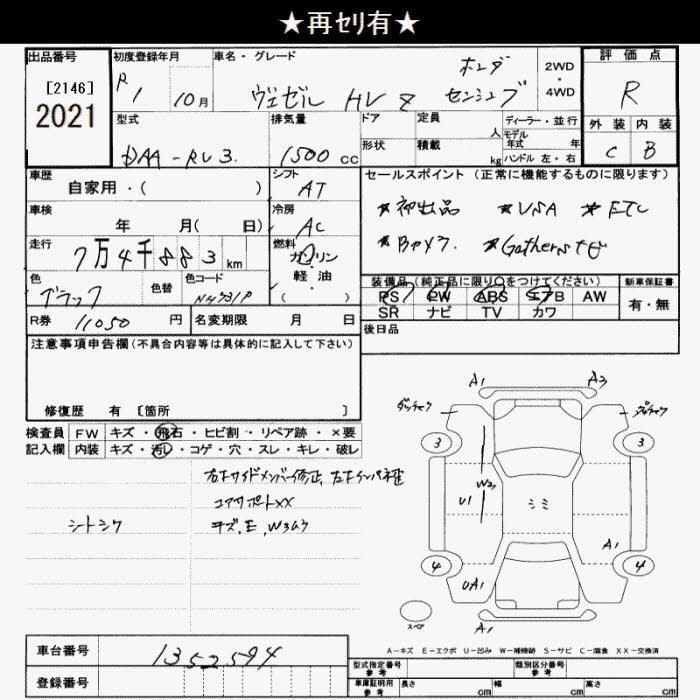 ★再セリ有★
出品番号 初度登録年月 車名・グレード 評価点
[2146] R1 10月 ヴェゼル HV Z ホンダ センシング 2WD・4WD R
2021
型式 排気量 ドア 定員 人 ディーラー・並行 外装 内装
DAA-RU3. 1500cc 形状 積載 kg モデル年式 年 ハンドル 左・右 C B
車歴 シフト セールスポイント (正常に機能するものに限ります)
自家用・( ) AT ★初出品 ★USA ★ETC
車検 冷房
年 月( 日) AC
走行 燃料 ★Bカメラ ★Gathers
7万4千883km ガソリン
軽・油
( )
色 色替 色コード 装備品(純正品に限り○をつけてください) 新車保証書
ブラック PS PW ABS エアB AW 有・無
SR ナビ TV カワ
R券 11050円 名変期限 月 日 後日品
注意事項申告欄(不具合内容等は具体的に記入して下さい)
修復歴 有 [箇所 ]
検査員 FW キズ・飛石・ヒビ割・リペア跡・×要
記入欄 内装 キズ・汚レ・コゲ・穴・スレ・キレ・破レ
A1 A3
3 3
右左サイドメンバー修正,
コアサポートXX
シートシワ キズ,E,W3カク
W3
U1 シミ
A1
4 4
UA1
スペア A1
A-キズ E-エクボ U-凹み W-補修跡 S-サビ C-腐食 XX-交換済
車台番号 1352594
登録番号
型式指定番号 参考 類別区分番号 参考
車庫証明用 参考 長さ cm 幅 cm 高さ cm